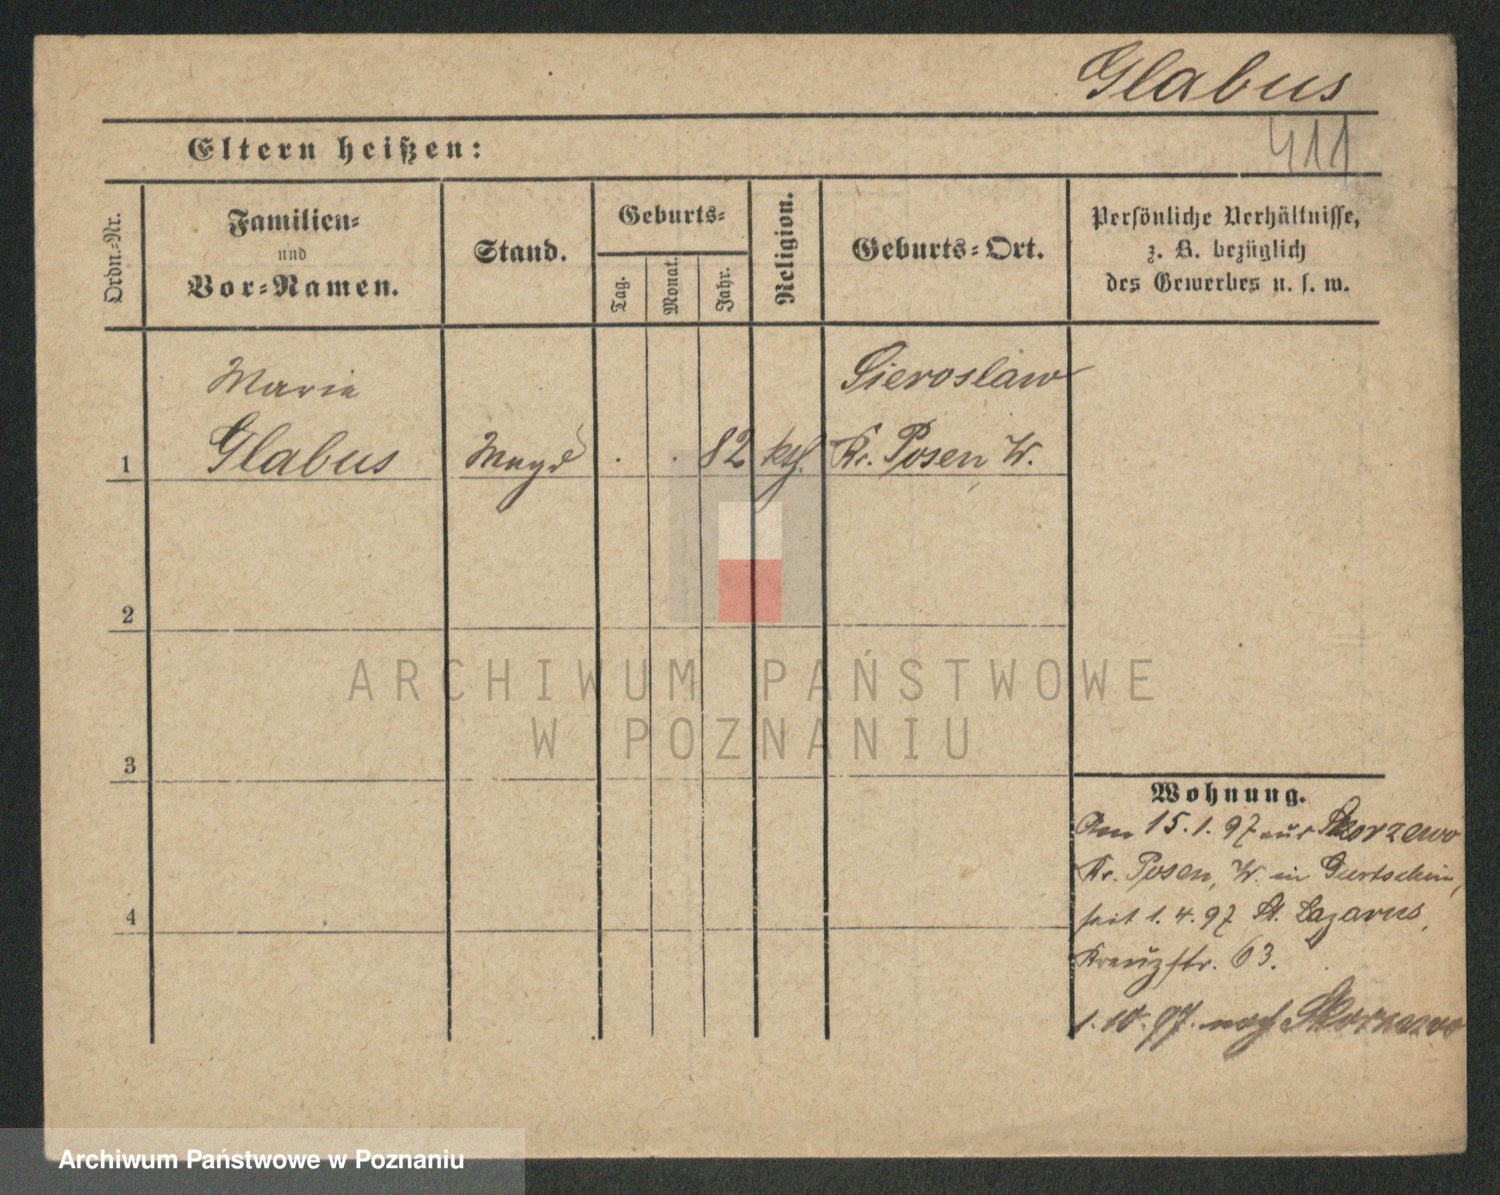 Glabus
411
Eltern heißen:
Ordn.-Nr.
Familien-
und
Vor-Namen.
Stand.
Geburts-
Tag.
Monat.
Jahr.
Religion.
Geburts-Ort.
Persönliche Verhältnisse,
z. B. bezüglich
des Gewerbes u. s. w.
Marie
Sieroslaw
1 Glabus Magd . . 82 kth. Kr. Posen W.
2
3
4
ARCHIWUM PAŃSTWOWE
W POZNANIU
Wohnung.
Am 15.1.97 aus Skorzewo
Kr. Posen, W. in Gurtschin,
seit 1.4.97 St. Lazarus,
Kreuzstr. 63.
1.10.97. nach
Archiwum Państwowe w Poznaniu